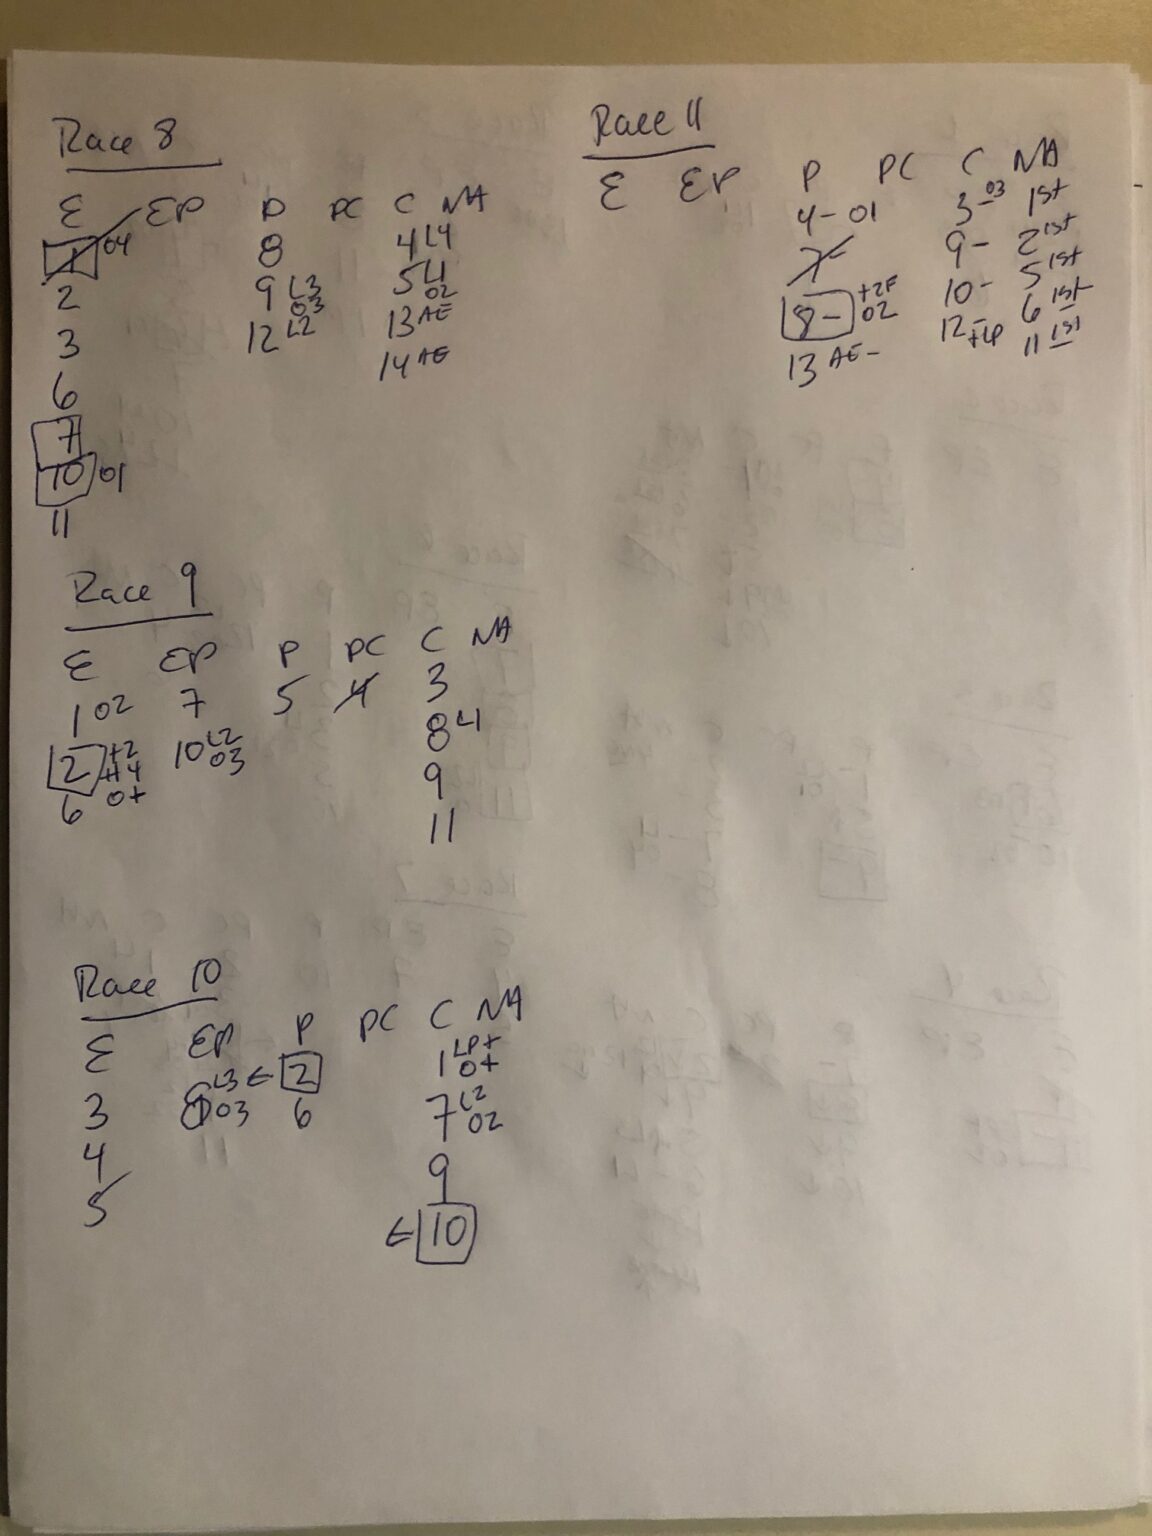 Race 8
E EP P PC C NA
1 04 8 4 L4
2 9 L3 03 5 L1 02
3 12 L2 13 AE
6 14 AE
7
10 01
11
Race 9
E EP P PC C NA
1 02 7 5 4 3
2 +2 10 L2 03 8
6 0+ 9
11
Race 10
E EP P PC C NA
L3 ← 2 1 LP+ 0+
3 03 6 7 L2 02
4 9
5 ← 10
Race 11
E EP P PC C NA
4 - 01 3 - 03 1st
7 - 9 - 2 1st
8 - +2F 02 10 - 5 1st
13 AE - 12 - 6 1st
11 1st